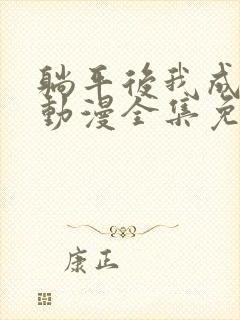 躺平後我成
動漫全集免
康正